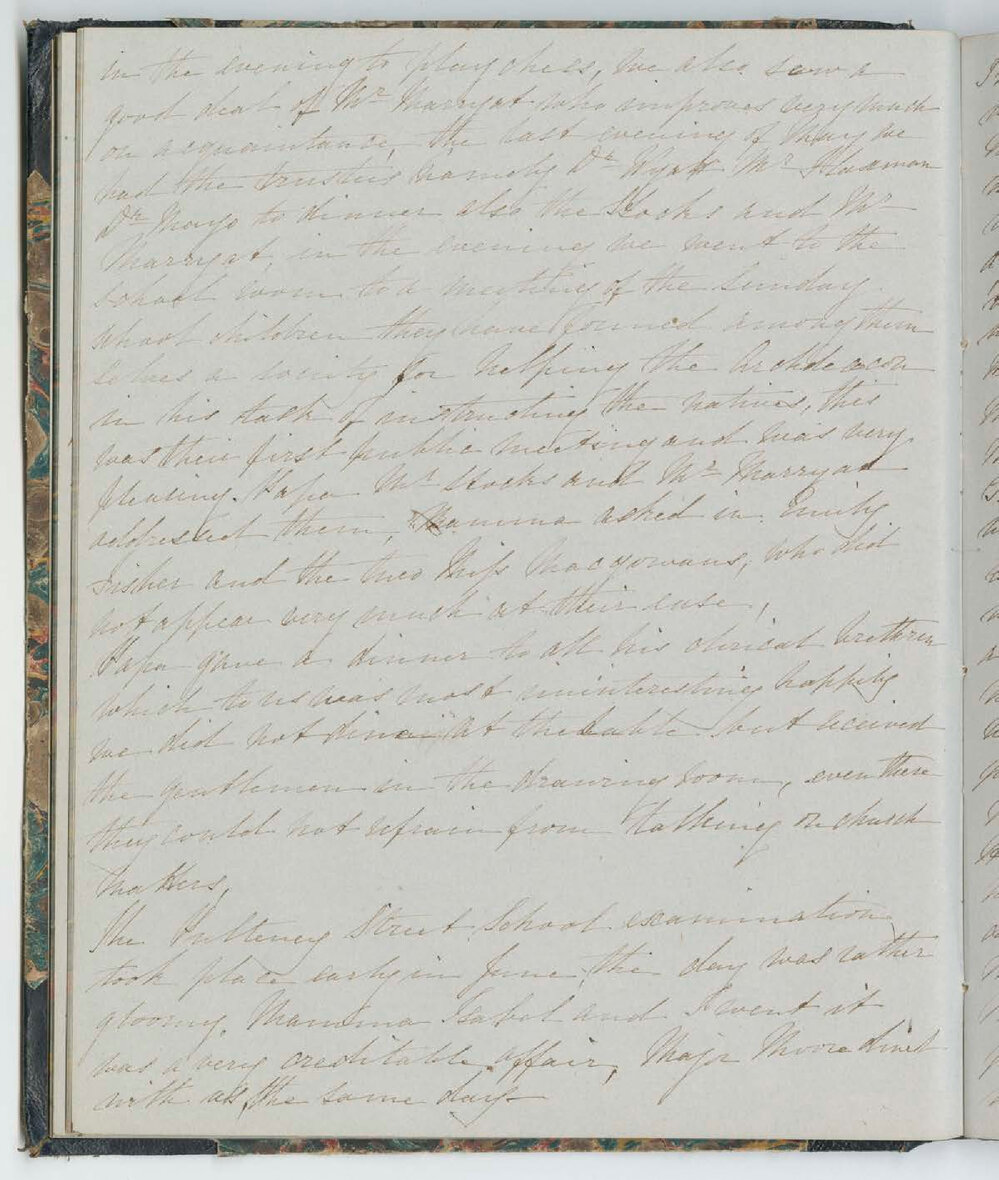 in the evening to play chess, we also saw a
good deal of Mr Marryat who improves very much
on acquaintance, the last evening of May we
had the trustees namely Dr Wyatt Mr Flaxman
Dr Mayo to dinner also the Stocks and Mr
Marryat, in the evening we went to the
school room to a meeting of the Sunday
school children they have formed among them
selves a society for helping the Archdeacon
in his task of instructing the natives, this
was their first public meeting and was very
pleasing. Papa Mr Stocks and Mr Marryat
addressed them, Mamma asked in Emily
Fisher and the two Miss Macgowans, who did
not appear very much at their ease,
Papa gave a dinner to all his clerical brethren
which to us was most uninteresting happily
we did not dine at the table but received
the gentlemen in the drawing room, even there
they could not refrain from talking on church
matters,
The Pulteney Street School examination
took place early in June, the day was rather
gloomy. Mamma Isabel and I went it
was a very creditable affair, Major Moore dined
with us, the same day